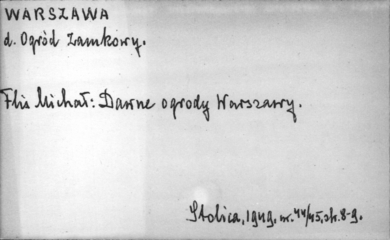 WARSZAWA
d. Ogród Zamkowy.
Flis Michał: Dawne ogrody Warszawy.
Stolica, 1949. nr. 44/45, str. 8-9.